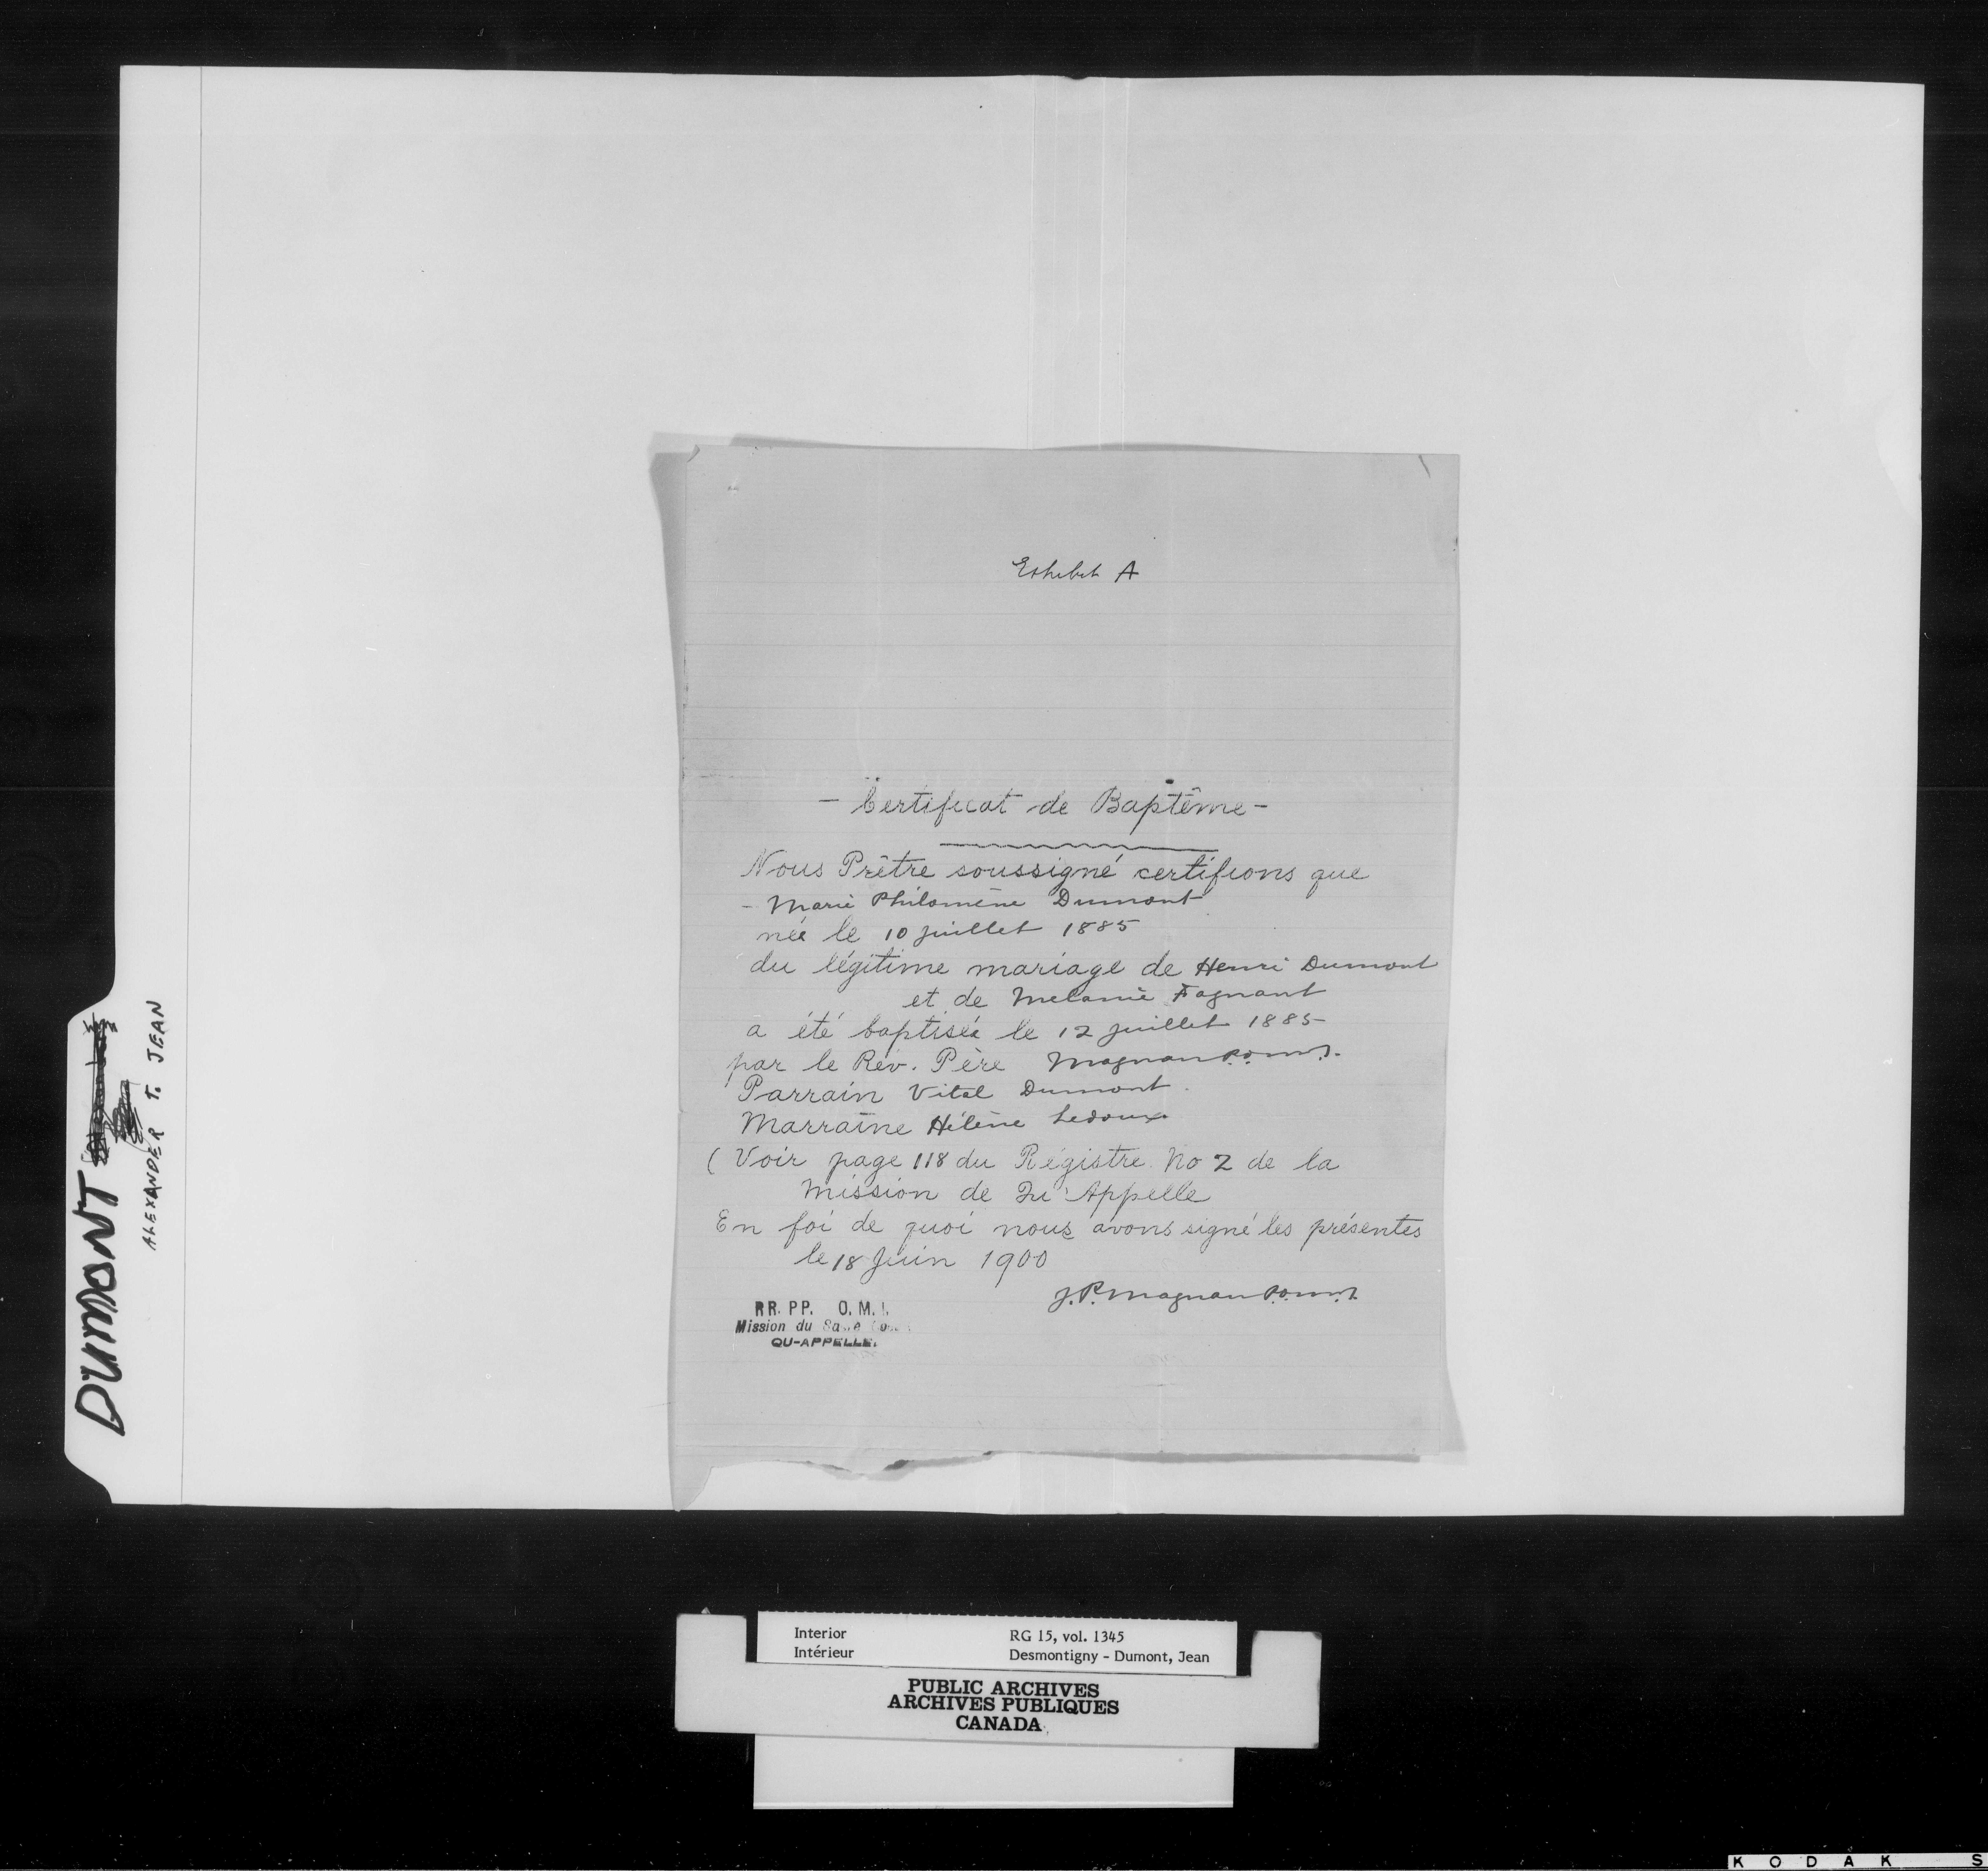 Exhibit A
- Certificat de Baptême -
Nous Prêtre soussigné certifions que
- Marie Philomène Dumont
née le 10 juillet 1885
du légitime mariage de Henri Dumont
et de Melanie Fagnant
a été baptisée le 12 juillet 1885
par le Rév. Père Magnan p.o.m.I.
Parrain Vital Dumont.
Marraine Hélène Ledoux
( Voir page 118 du Régistre No 2 de la
Mission de Qu'Appelle
En foi de quoi nous avons signé les présentes
le 18 Juin 1900
J.P. Magnan p.o.m.I.
RR. PP. O. M. I.
Mission du
QU-APPELLE.
DUMONT
ALEXANDER T. JEAN
Interior
Intérieur
RG 15, vol. 1345
Desmontigny - Dumont, Jean
PUBLIC ARCHIVES
ARCHIVES PUBLIQUES
CANADA
KODAK S